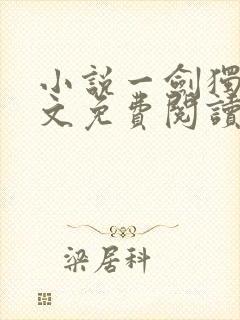 小説一劍獨
文免費閱讀
梁居科